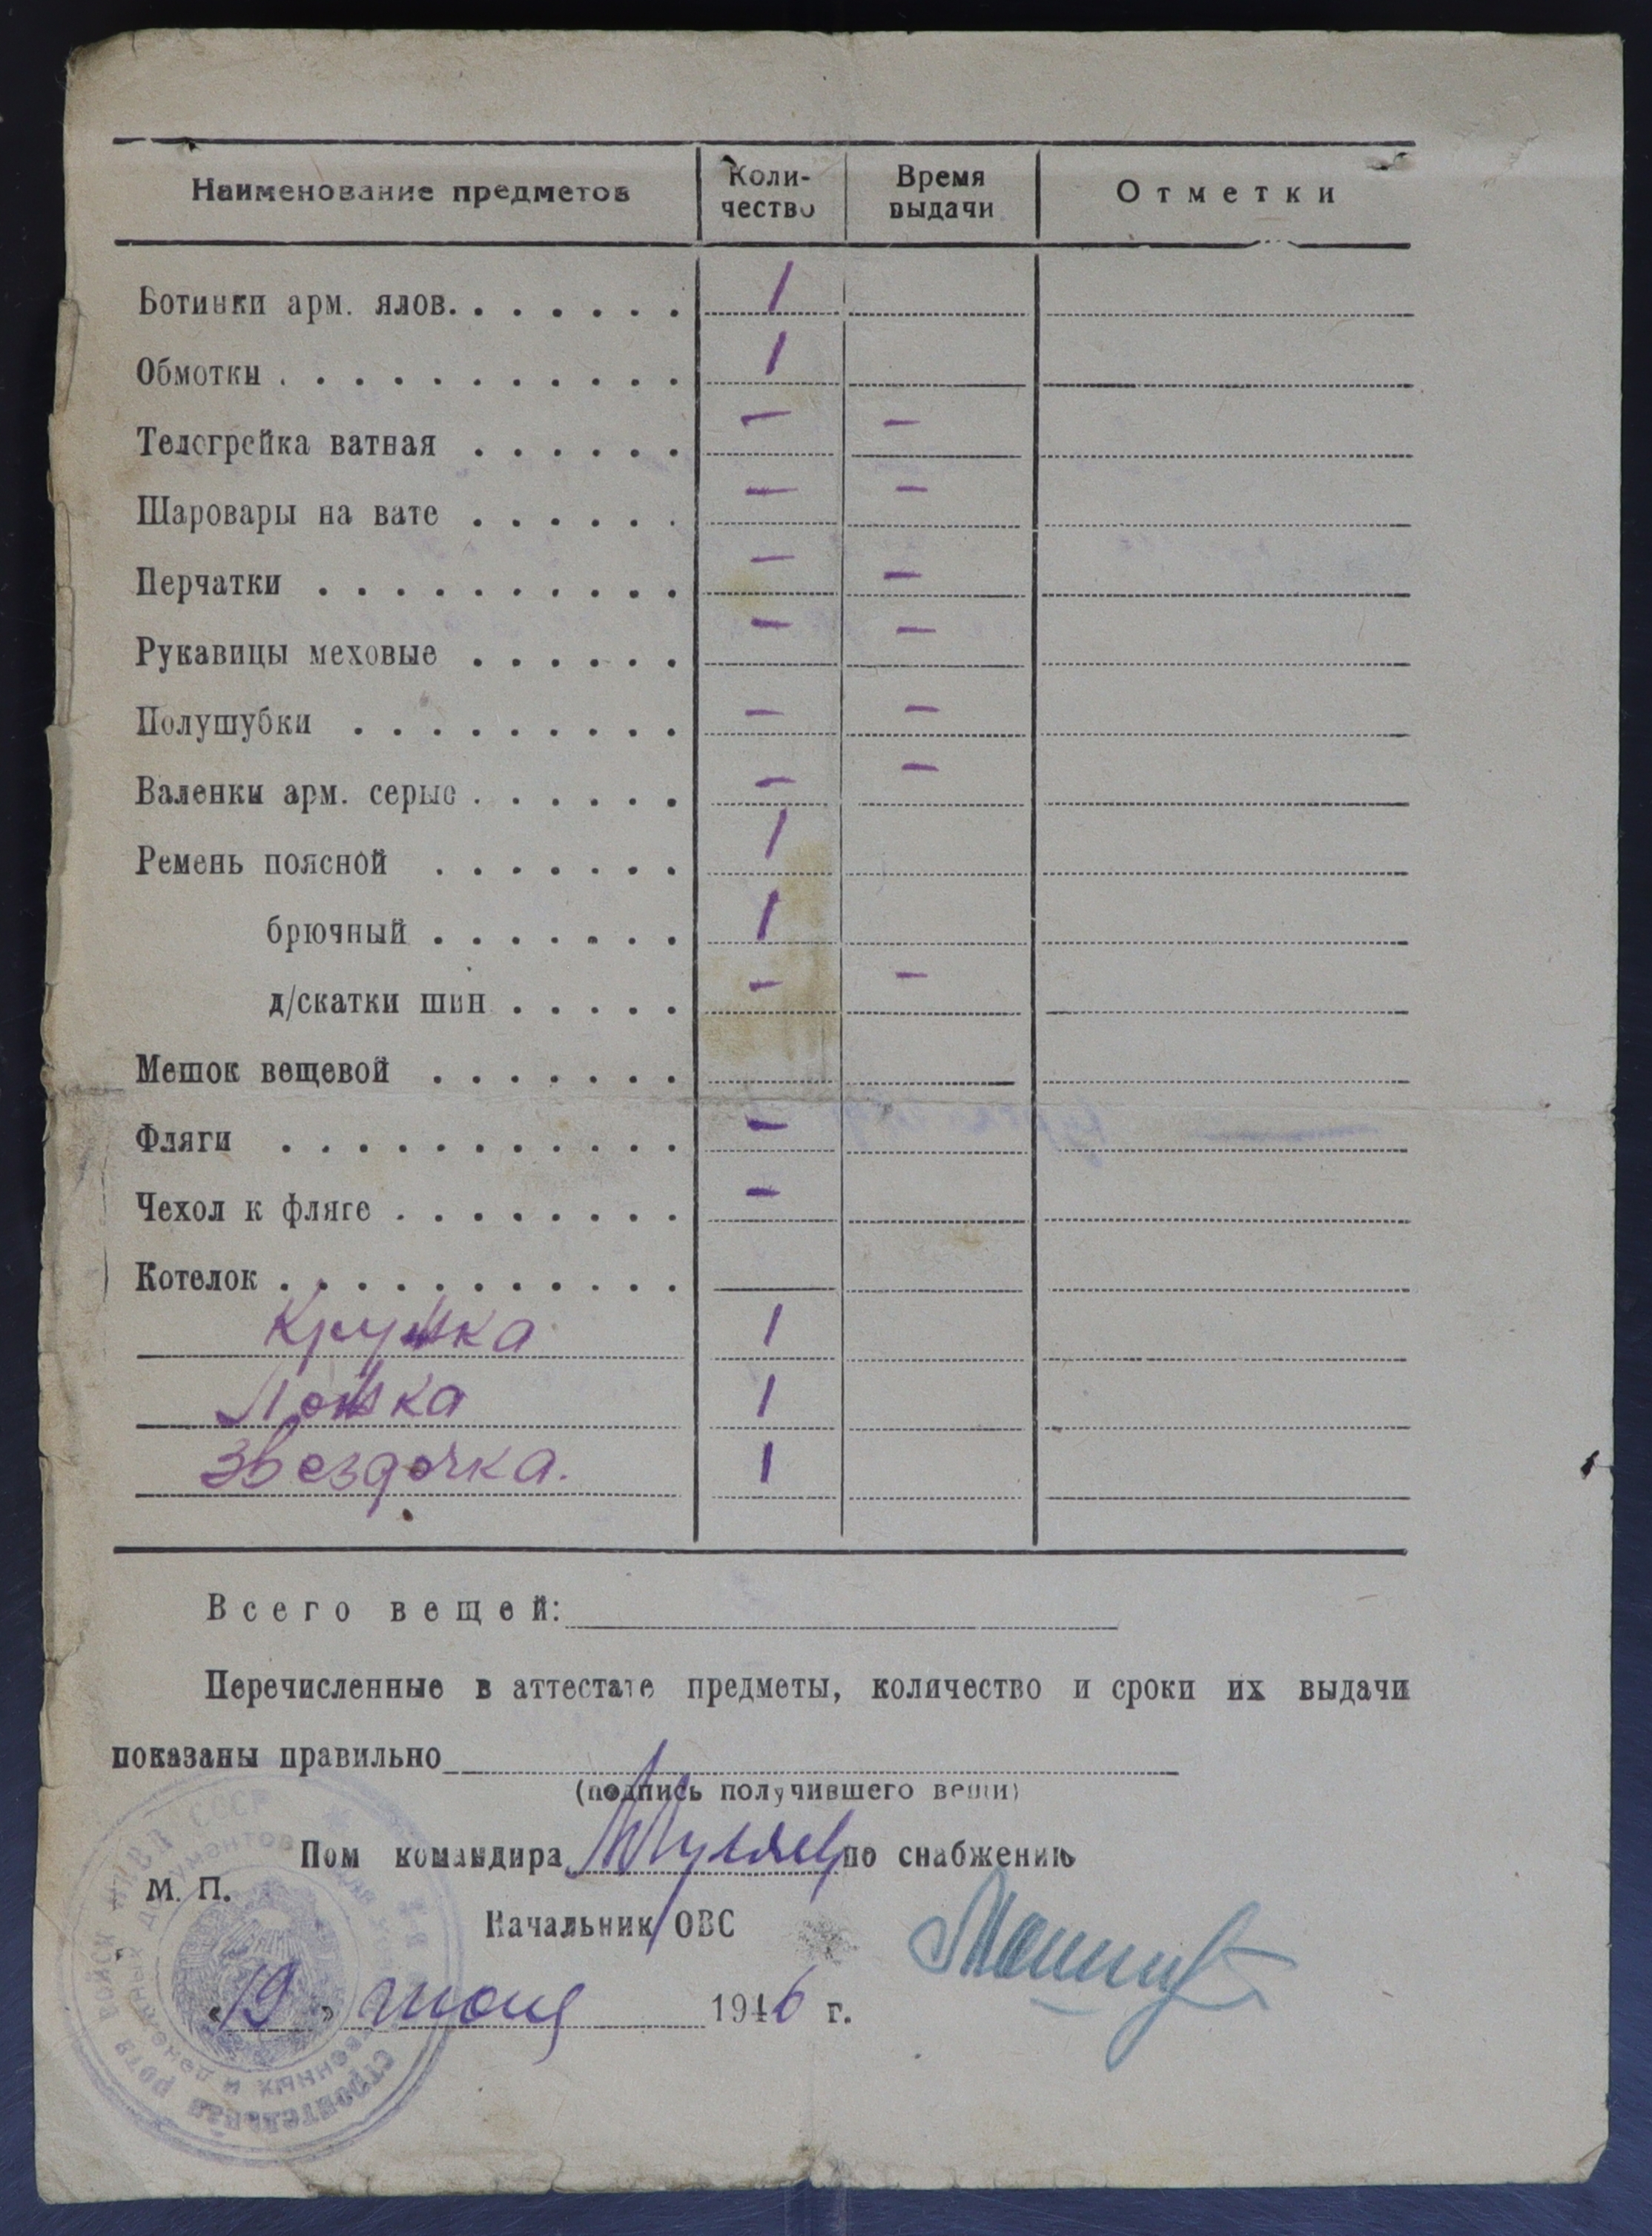 Наименование предметов Количество Время выдачи Отметки
Ботинки арм. ялов. . . . . . . 1
Обмотки . . . . . . . . . . . 1
Телогрейка ватная . . . . . . — —
Шаровары на вате . . . . . . — —
Перчатки . . . . . . . . . . — —
Рукавицы меховые . . . . . . — —
Полушубки . . . . . . . . . — —
Валенки арм. серые . . . . . . — —
Ремень поясной . . . . . . . 1
брючный . . . . . . . 1
д/скатки шин . . . . . — —
Мешок вещевой . . . . . . .
Фляги . . . . . . . . . . . —
Чехол к фляге . . . . . . . . —
Котелок . . . . . . . . . . .
Кружка 1
Ложка 1
Звездочка. 1
Всего вещей:
Перечисленные в аттестате предметы, количество и сроки их выдачи
показаны правильно
(подпись получившего вещи)
Пом командира по снабжению
М. П.
Начальник ОВС
«19» июня 1946 г.
войск НКВД СССР
строительная рота